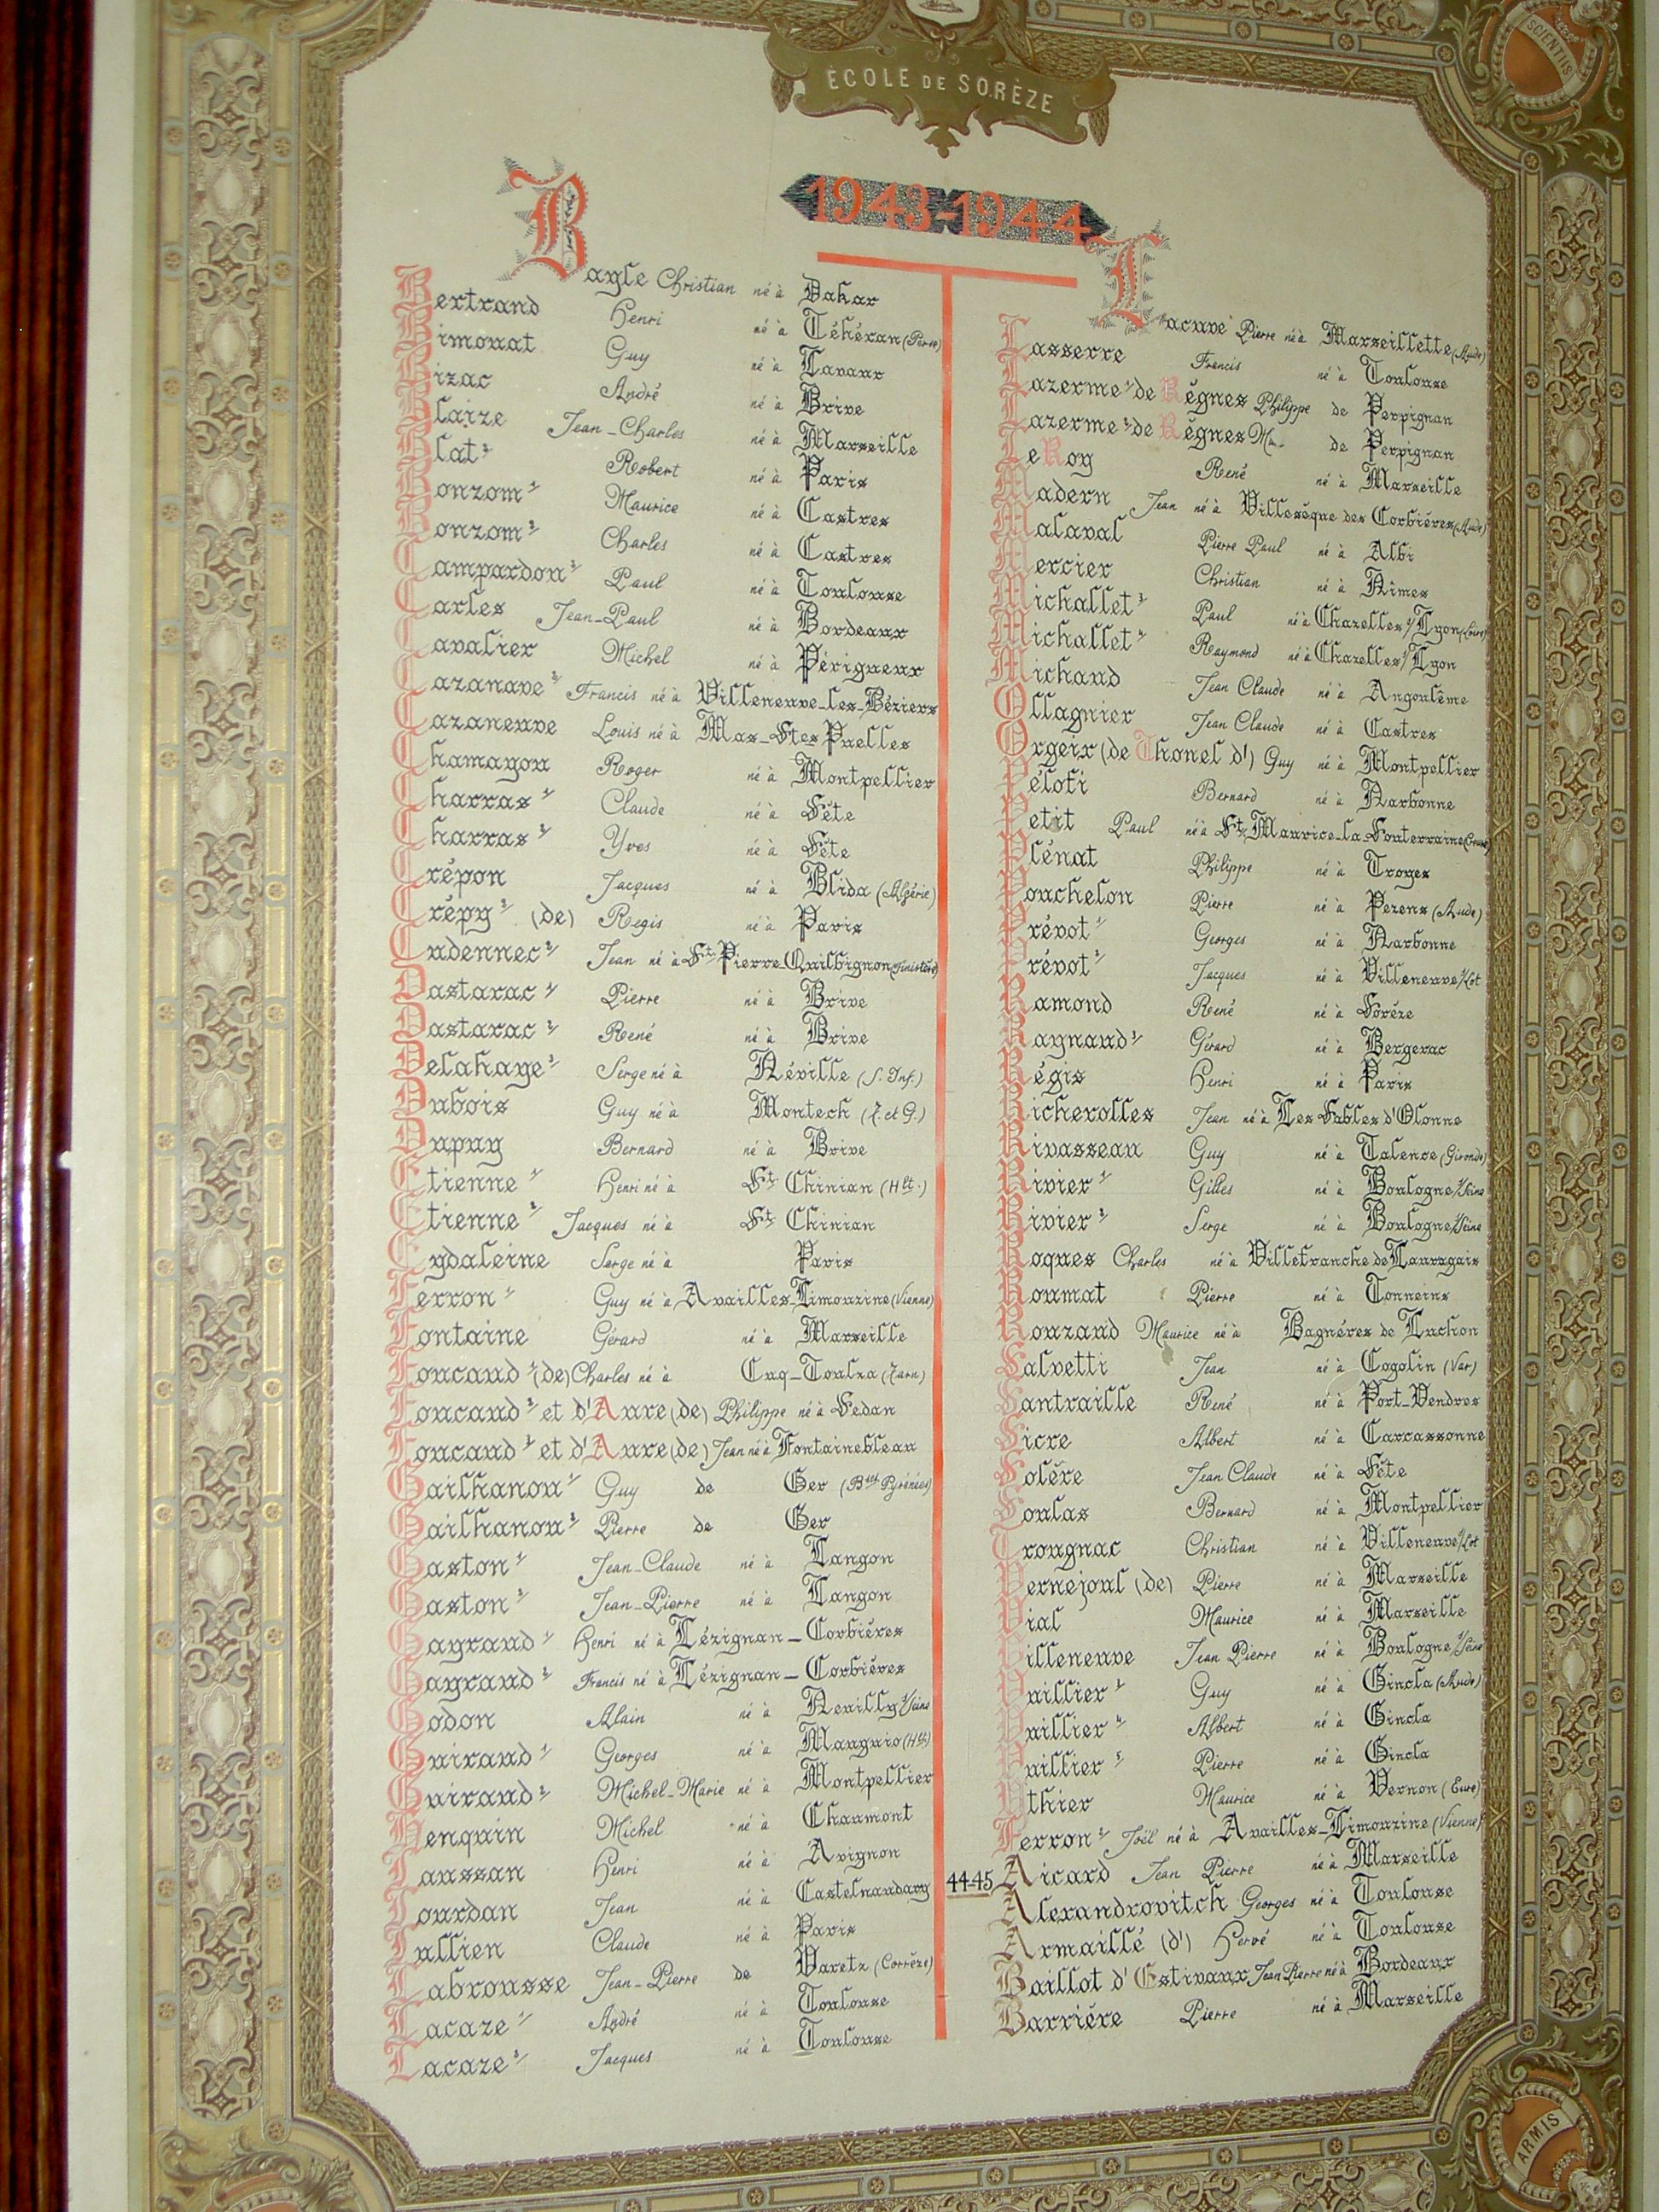 ÉCOLE DE SORÈZE
SCIENTIIS
1943-1944
Bayle Christian né à Dakar
Bertrand Henri né à Téhéran (Perse)
Bimouat Guy né à Lavaur
Bizac André né à Brive
Blaize Jean-Charles né à Marseille
Blat² Robert né à Paris
Bonzom¹ Maurice né à Castres
Bonzom² Charles né à Castres
Campardou² Paul né à Toulouse
Carles Jean-Paul né à Bordeaux
Cavalier Michel né à Périgueux
Cazanave² Francis né à Villeneuve-les-Béziers
Cazaneuve Louis né à Mas-Stes Puelles
Chamayou Roger né à Montpellier
Charras¹ Claude né à Sète
Charras² Yves né à Sète
Crépon Jacques né à Blida (Algérie)
Crépy² (de) Regis né à Paris
Cudennec² Jean né à St Pierre-Quilbignon (Finistère)
Dastarac¹ Pierre né à Brive
Dastarac² René né à Brive
Delahaye² Serge né à Néville (S. Inf.)
Dubois Guy né à Montech (T. et G.)
Dupuy Bernard né à Brive
Etienne¹ Henri né à St Chinian (Hlt.)
Etienne² Jacques né à St Chinian
Eydaleine Serge né à Paris
Ferron¹ Guy né à Availles-Limouzine (Vienne)
Fontaine Gérard né à Marseille
Foucaud¹ (de) Charles né à Cuq-Toulza (Tarn)
Foucaud² et d'Aure (de) Philippe né à Sedan
Foucaud³ et d'Aure (de) Jean né à Fontainebleau
Gailhanou¹ Guy de Ger (Bses Pyrénées)
Gailhanou² Pierre de Ger
Gaston¹ Jean-Claude né à Langon
Gaston² Jean-Pierre né à Langon
Gayraud¹ Henri né à Lézignan-Corbières
Gayraud² Francis né à Lézignan-Corbières
Godon Alain né à Neuilly s/Seine
Guiraud¹ Georges né à Mauguio (Hlt)
Guiraud² Michel-Marie né à Montpellier
Henquin Michel né à Chaumont
Jaussan Henri né à Avignon
Jourdan Jean né à Castelnaudary
Jullien Claude né à Paris
Labrousse Jean-Pierre de Varetz (Corrèze)
Lacaze¹ André né à Toulouse
Lacaze² Jacques né à Toulouse
Lacuve Pierre né à Marseillette (Aude)
Lasserre Francis né à Toulouse
Lazerme¹ de Règnes Philippe de Perpignan
Lazerme² de Règnes de Perpignan
Le Roy René né à Marseille
Madern Jean né à Villesèque des Corbières (Aude)
Malaval Pierre Paul né à Albi
Mercier Christian né à Nîmes
Michallet³ Paul né à Chazelles s/Lyon (Loire)
Michallet⁴ Raymond né à Chazelles s/Lyon
Michaud Jean Claude né à Angoulême
Ollagnier Jean Claude né à Castres
Orgeix (de Thonel d') Guy né à Montpellier
Péloti Bernard né à Narbonne
Petit Paul né à St Maurice-la-Souterraine (Creuse)
Plénat Philippe né à Troyes
Pouchelon Pierre né à Pezens (Aude)
Prévot¹ Georges né à Narbonne
Prévot² Jacques né à Villeneuve s/Lot
Ramond René né à Sorèze
Raynaud² Gérard né à Bergerac
Régis Henri né à Paris
Richerolles Jean né à Les Sables d'Olonne
Rivasseau Guy né à Talence (Gironde)
Rivier¹ Gilles né à Boulogne s/Seine
Rivier² Serge né à Boulogne s/Seine
Roques Charles né à Villefranche de Lauragais
Roumat Pierre né à Tonneins
Rouzaud Maurice né à Bagnères de Luchon
Salvetti Jean né à Cogolin (Var)
Santraille René né à Port-Vendres
Sicre Albert né à Carcassonne
Solère Jean Claude né à Sète
Soulas Bernard né à Montpellier
Trougnac Christian né à Villeneuve s/Lot
Vernejoul (de) Pierre né à Marseille
Vial Maurice né à Marseille
Villeneuve Jean Pierre né à Boulogne s/Seine
Vuillier³ Guy né à Gincla (Aude)
Vuillier⁴ Albert né à Gincla
Vuillier⁵ Pierre né à Gincla
Ythier Maurice né à Vernon (Eure)
Ferron² Joël né à Availles-Limouzine (Vienne)
44-45 Aicard Jean Pierre né à Marseille
Alexandrovitch Georges né à Toulouse
Armaillé (d') Hervé né à Toulouse
Baillot d'Estivaux Jean Pierre né à Bordeaux
Barrière Pierre né à Marseille
ARMIS